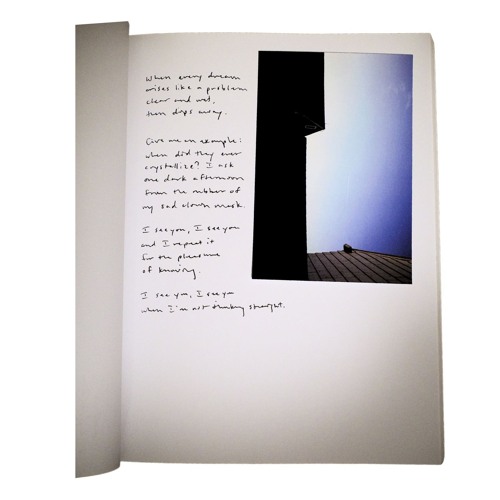 When every dream
arises like a problem
clear and wet,
then drips away.
Give me an example:
when did they ever
crystallize? I ask
one dark afternoon
from the rubber of
my sad clown mask.
I see you, I see you
and I repeat it
for the pleasure
of knowing.
I see you, I see you
when I'm not thinking straight.